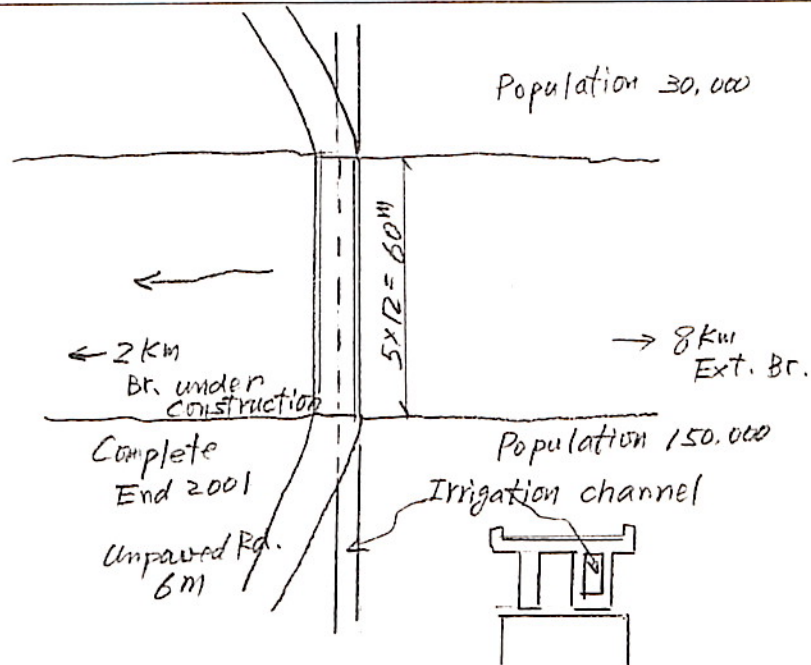 Population 30,000
5x12= 60m
← 2 Km
Br. under
construction
→ 8 Km
Ext. Br.
Complete
End 2001
Population 150.000
Irrigation channel
Unpaved Rd.
6m